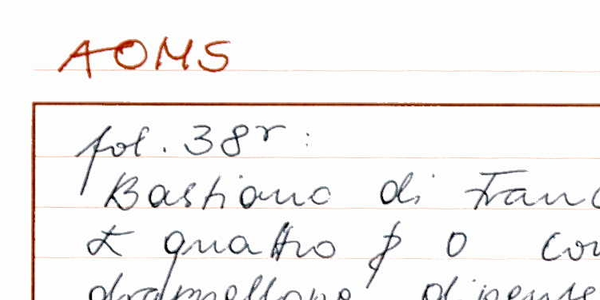 AOMS
fol. 38r:
Bastiano di Franc
£ quattro p 0 co